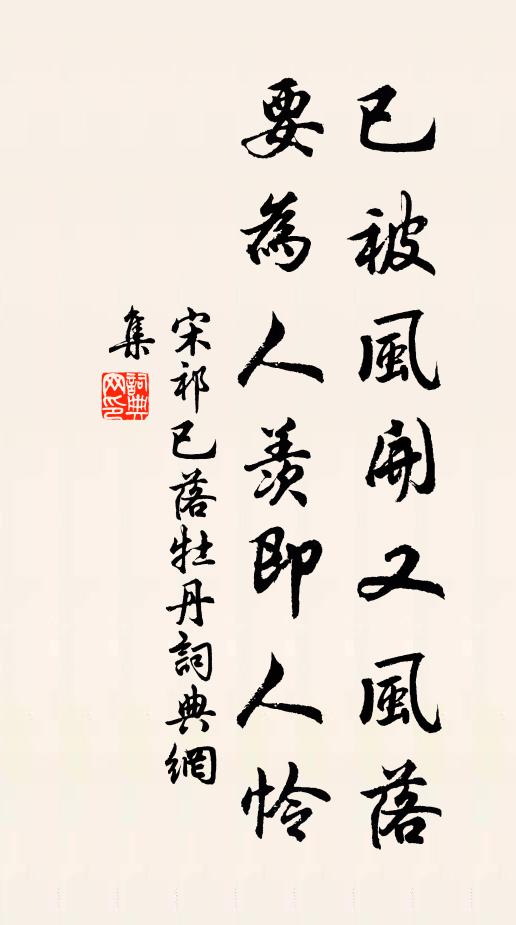 已被風開又風落
要為人羨即人怜
宋祁已落牡丹詞典網
集
詞典網印